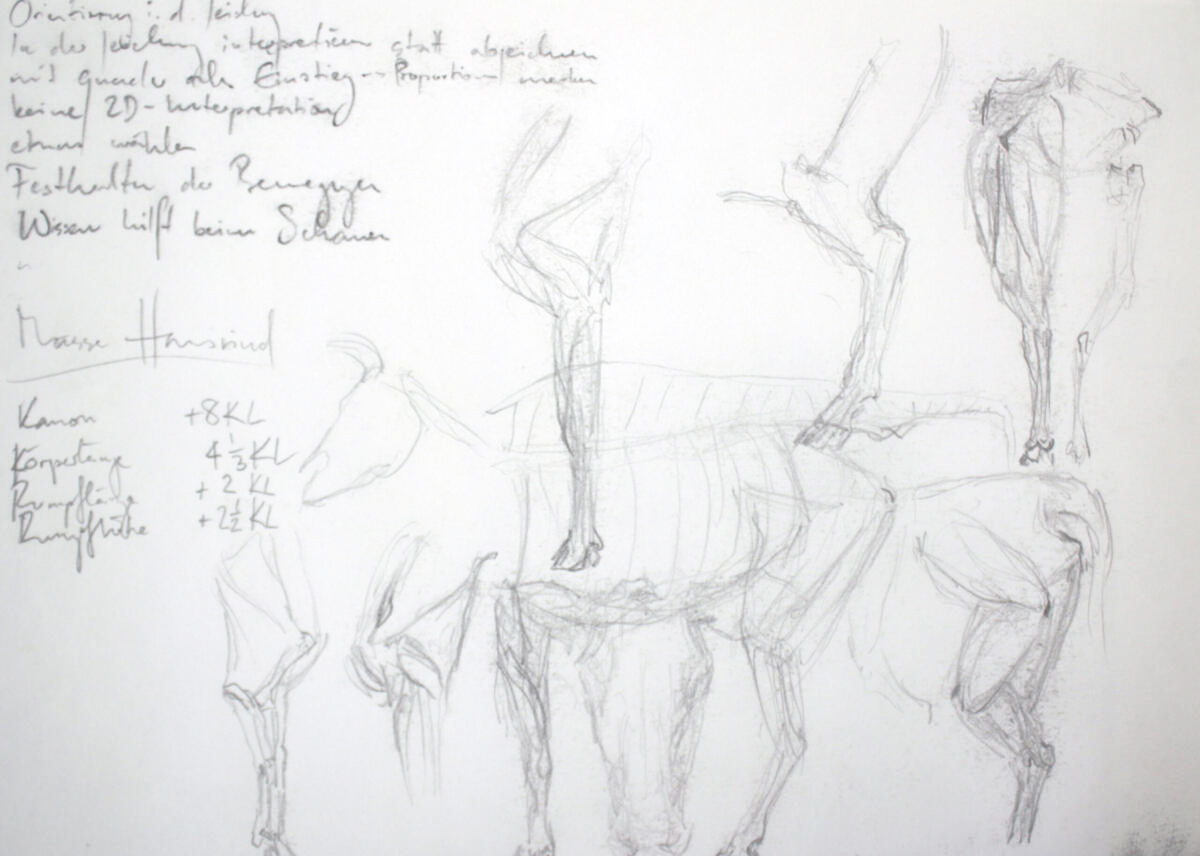 Orientierung i. d. Zeichng
In der Zeichnung interpretieren statt abzeichnen
mit Quader als Einstieg → Proportion
keine 2D-Interpretation
etwas wählen
Festhalten der Bewegung
Wissen hilft beim Schauen
Masse Hausrind
Kanon +8KL
Körperlänge 4 1/3 KL
Rumpflänge + 2 KL
Rumpfhöhe + 2 1/2 KL